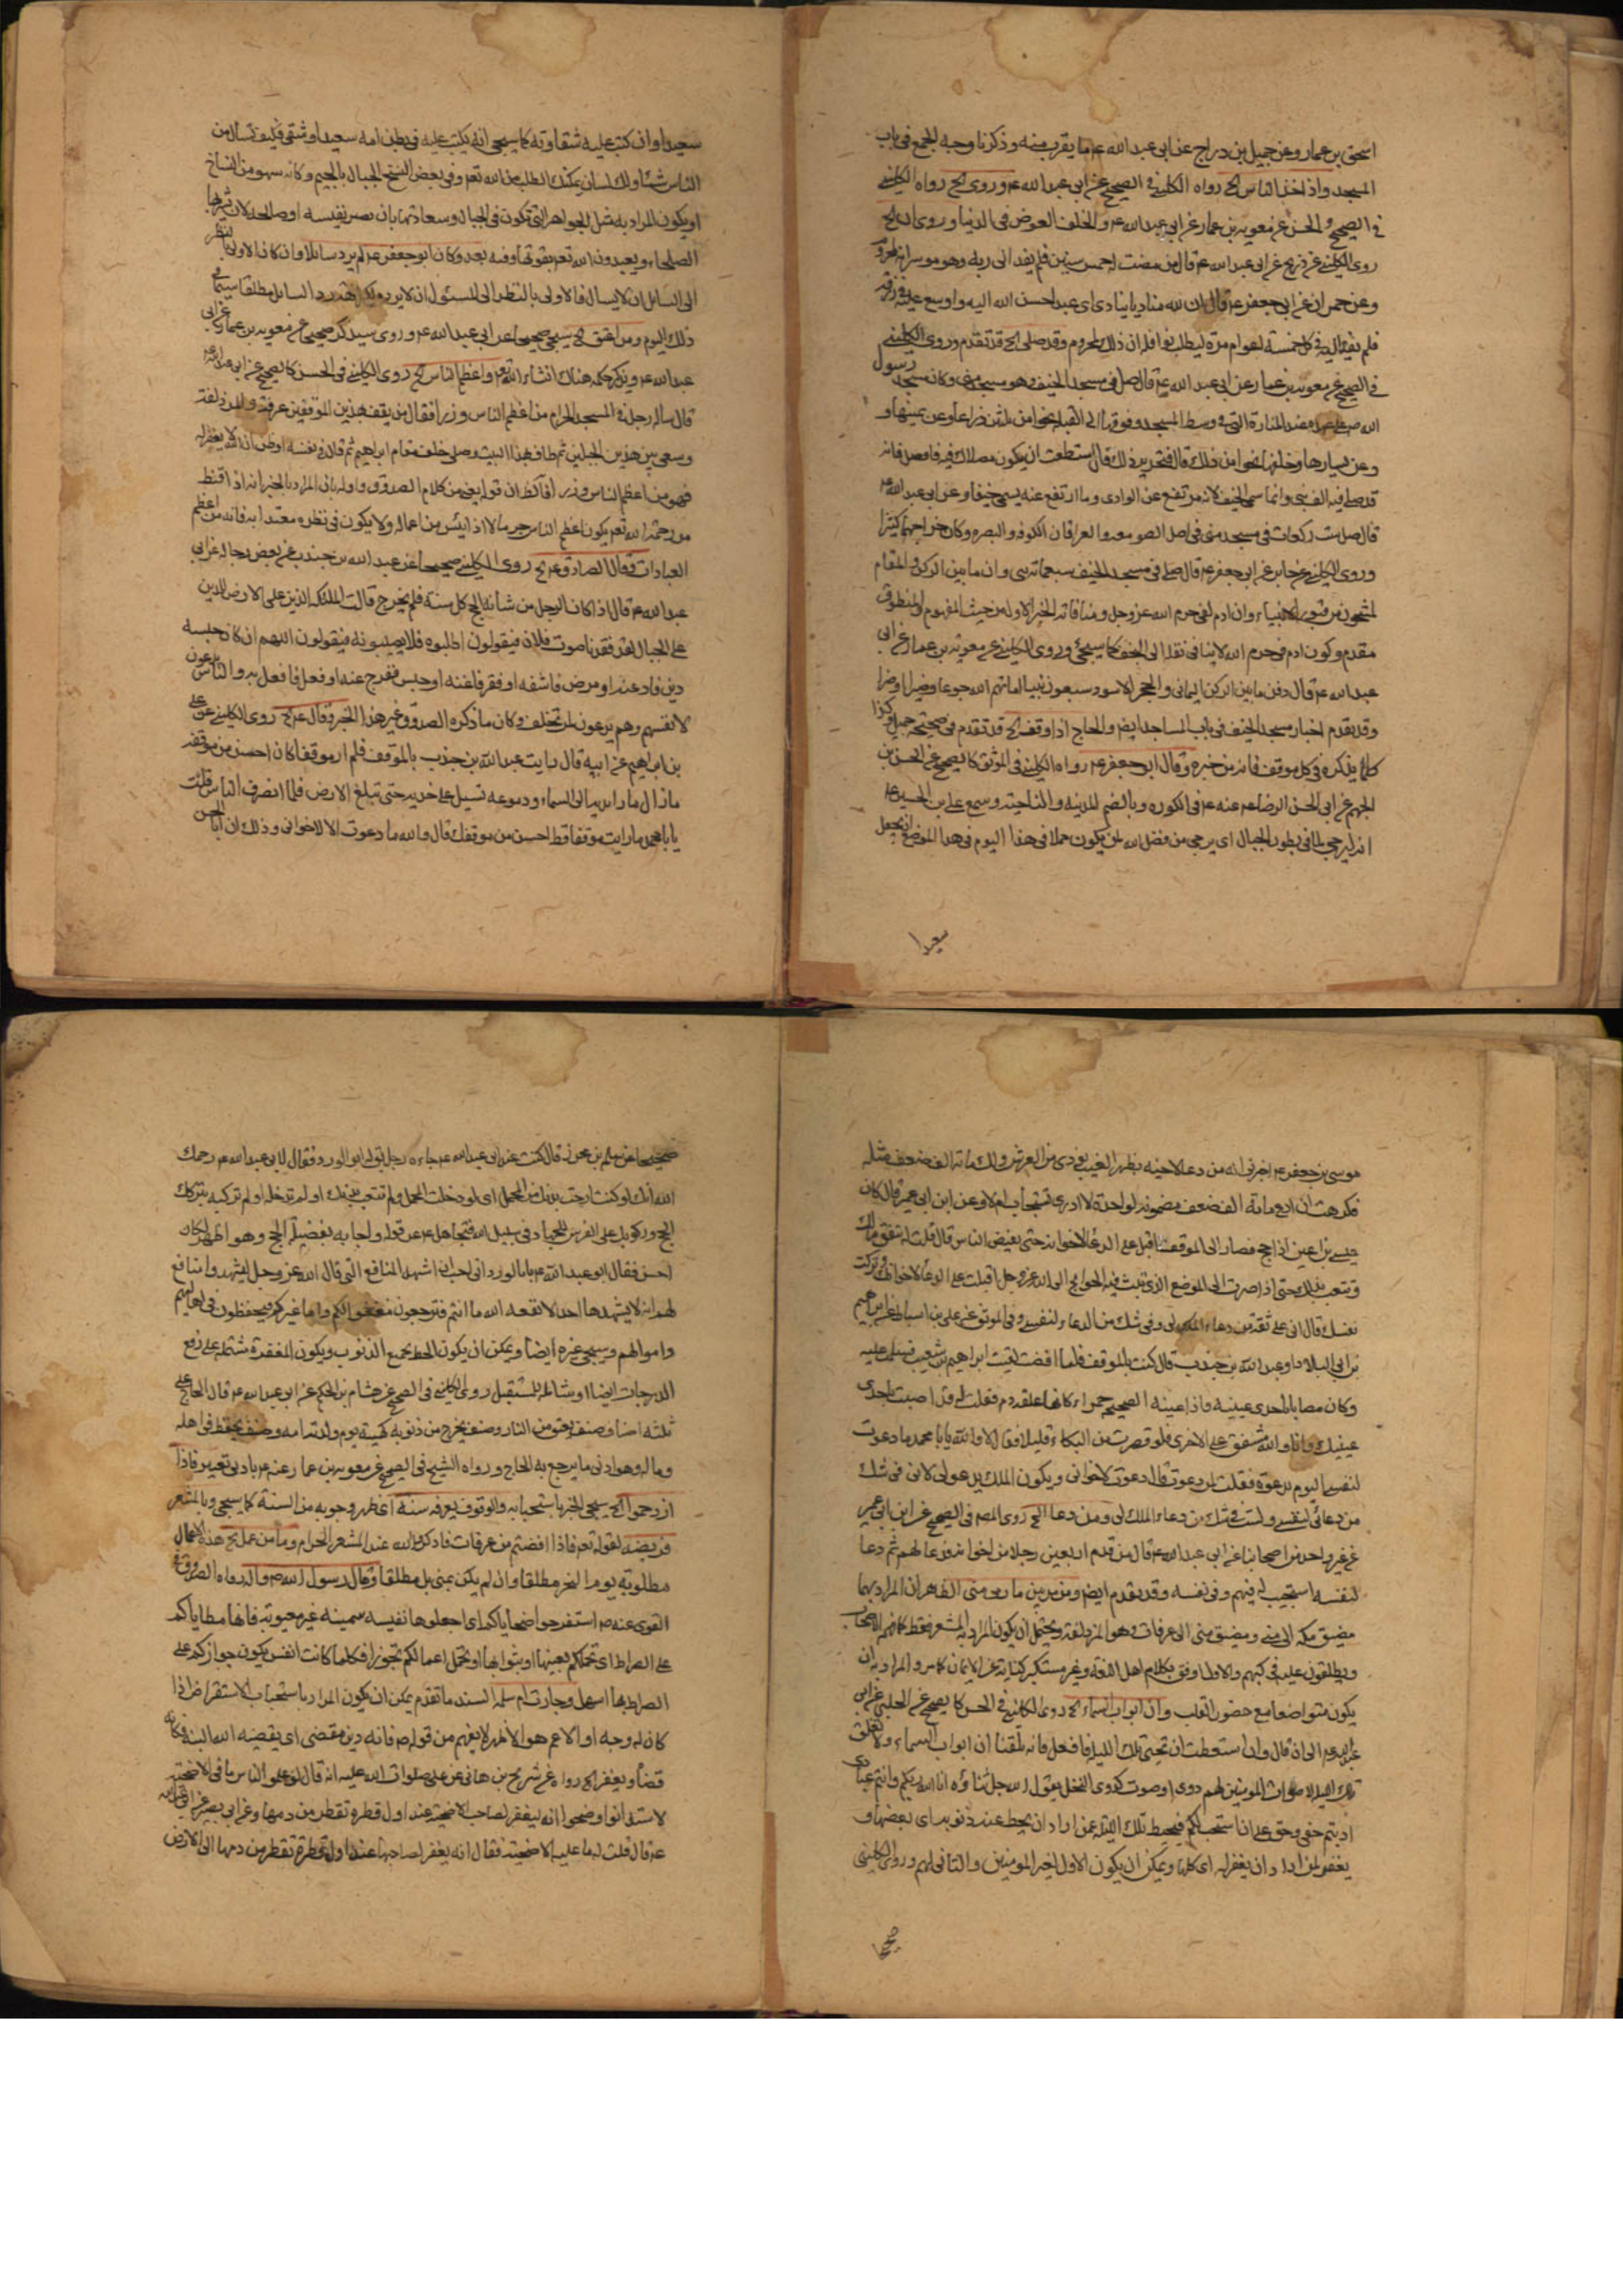 اسحق بن عمار وعن جميل بن دراج عن ابى عبد الله ع ما يقرب منه وذكرنا وجه الجمع فى باب
المسجد واذا اخذ الناس الخ رواه الكلينى فى الصحيح عن ابى عبد الله ع وروى الخ رواه الكلينى
فى الصحيح والحسن عن معوية بن عمار عن ابى عبد الله ع والخلف العوض فى الدنيا وروى ان الخ
روى الكلينى عن ذريح عن ابى عبد الله ع قال من مضت له خمس سنين فلم يفد الى ربه وهو موسر انه لمحروم
وعن حمران عن ابى جعفر ع قال ان لله مناديا ينادى اى عبد احسن الله اليه واوسع عليه فى رزقه
فلم يفد اليه فى كل خمسة اعوام مرة ليطلب نوافله ان ذلك لمحروم وقد صلى الخ قد تقدم وروى الكلينى
فى الصحيح عن معوية بن عمار عن ابى عبد الله ع قال صل فى مسجد الخيف وهو مسجد منى وكان مسجد رسول
الله ص على عهده عند المنارة التى فى وسط المسجد وفوقها الى القبلة نحوا من ثلثين ذراعا وعن يمينها و
وعن يسارها وخلفها نحوا من ذلك قال فتحر ذلك قال استطعت ان يكون مصلاك فيه فافعل فانه
قد صلى فيه الف نبى وانما سمى الخيف لانه مرتفع عن الوادى وما ارتفع عنه يسمى خيفا وعن ابى عبد الله ع
قال صل ست ركعات فى مسجد منى فى اصل الصومعة والعراقان الكوفه والبصره وكان خراجهما كثيرا
وروى الكلينى عن جابر عن ابى جعفر ع قال صلى فى مسجد الخيف سبعمائة نبى وان ما بين الركن والمقام
لمشحون من قبور الانبياء وان ادم لفى حرم الله عز وجل ومنافاته الخبر الاول من حيث المفهوم والمنطوق
مقدم وكون ادم فى حرم الله لا ينافى نقله الى النجف كما سيجئ وروى الكلينى عن معوية بن عمار عن ابى
عبد الله ع قال دفن ما بين الركن اليمانى والحجر الاسود سبعون نبيا اماتهم الله جوعا وضرا
وقد تقدم اخبار مسجد الخيف فى باب المساجد ايض والحاج اذا وقف الخ قد تقدم فى صحيحة جميل وكذا
كلما يذكره فى كل موقف فانه من خبره وقال ابو جعفر ع رواه الكلينى فى الموثق كالصحيح عن الحسن بن
الجهم عن ابى الحسن الرضا ع عنه ع فى الكوره وبالضم المدينة والناحية وسمع على بن الحسين ع
انه ليرجى لما فى بطون الحبال اى يرجى من فضل الله لمن يكون حملا فى هذا اليوم فى هذا الموضع ان يجعل
سعيدا
سعيدا وان كتب عليه شقاوته كما سيجى انه يكتب عليه فى بطن امه سعيد او شقى فكيف تسأل من
الناس شيئا ولك لسان يمكنك الطلب من الله تعم وفى بعض النسخ الجبال بالجيم وكانه سهو من النساخ
او يكون المراد به مثل الجواهر التى تكون فى الجبال وسعادتها بان يصير نفيسه او صالحه لان يشربها
الصلحاء ويعبدون الله تعم بقوتها وفيه بعد وكان ابو جعفر ع لم يرد سائلا وان كان الاولى بالنظر
الى السائل ان لا يسال فالاولى بالنظر الى المسئول ان لا يرد رد السائل مطلقا سيما فى
ذلك اليوم ومن اعتق الخ سيجى صحيحا عن ابى عبد الله ع وروى سيذكر صحيحا عن معوية بن عمار عن ابى
عبد الله ع ويذكر حكمه هناك انشاء الله تعم واعظم الناس الخ روى الكلينى فى الحسن كالصحيح عن ابى عبد الله ع
قال ساله رجل فى المسجد الحرام من اعظم الناس وزرا فقال من يقف بهذين الموقفين عرفة والمزدلفة
وسعى بين هذين الجبلين ثم طاف بهذا البيت وصلى خلف مقام ابراهيم ثم قال فى نفسه او ظن ان الله لا يغفر له
فهو من اعظم الناس وزرا فالظ ان قوله يعنى من كلام الصدوق واوله بان المراد بالخبر انه اذا قنط
من رحمة الله تعم يكون اعظم الناس جرما لانه اذا ايئس من اعماله ولا يكون فى نظره معتدا به فانه من اعظم
العبادات وقال الصادق ع الخ روى الكلينى صحيحا عن عبد الله بن جندب عن بعض رجاله عن ابى
عبد الله ع قال اذا كان الرجل من شأنه الحج كل سنة فلم يخرج قالت الملئكة الذين على الارض للذين
على الجبال لقد فقدنا صوت فلان فيقولون اطلبوه فلا يصيبونه فيقولون اللهم ان كان حبسه
دين فاد عنه او مرض فاشفه او فقر فاغنه او حبس ففرج عنه او فعل فافعل به والناس يدعون
لانفسهم وهم يدعون لمن تخلف وكان ما ذكره الصدوق غير هذا الخبر وقال ع الخ روى الكلينى عن على
بن ابراهيم عن ابيه قال رايت عبد الله بن جندب بالموقف فلم ار موقفا كان احسن من موقفه
ما زال مادا يديه الى السماء ودموعه تسيل على خديه حتى تبلغ الارض فلما انصرف الناس قلت
يا با محمد ما رايت موقفا قط احسن من موقفك قال والله ما دعوت الا لاخوانى وذلك ان ابا الحسن
موسى بن جعفر ع اخبرنى انه من دعا لاخيه بظهر الغيب نودى من العرش ولك مائة الف ضعف مثله
فكرهت ان ادع مائة الف ضعف مضمونة لواحدة لا ادرى تستجاب ام لا وعن ابن ابى عمير قال كان
عيسى بن اعين اذا حج فصار الى الموقف اقبل على الدعاء لاخوانه حتى يفيض الناس قال قلت له تنفق مالك
وتتعب بدنك حتى اذا صرت الى الموضع الذى تبث فيه الحوائج الى الله عز وجل اقبلت على الدعاء لاخوانك وتركت
نفسك قال انى على ثقة من دعاء الملك لى وفى شك من الدعاء لنفسى وفى الموثق عن على بن اسباط عن ابراهيم
بن ابى البلاد او عبد الله بن جندب قال كنت بالموقف فلما افضت لقيت ابراهيم بن شعيب فسلمت عليه
وكان مصابا باحدى عينيه فاذا عينه الصحيحه حمراء كانها علقة دم فقلت له قد اصبت باحدى
عينيك وانا والله مشفق على الاخرى فلو قصرت من البكاء قليلا فقال لا والله يا با محمد ما دعوت
لنفسى اليوم بدعوة فقلت لمن دعوت قال دعوت لاخوانى ويكون الملك يدعو لى لانى فى شك
من دعائى لنفسى ولست فى شك من دعاء الملك لى ومن دعا الخ روى المص فى الصحيح عن ابن ابى عمير
عن غير واحد من اصحابنا عن ابى عبد الله ع قال من قدم اربعين رجلا من اخوانه فدعا لهم ثم دعا
لنفسه استجيب له فيهم وفى نفسه وقد تقدم ايض ومن بين مازمى منى الظاهر ان المراد بهما
مضيق مكه الى منى ومضيق منى الى عرفات وهو المزدلفة ويحتمل ان يكون المراد به المشعر فقط كما فهمه الاصحاب
ويطلقون عليه فى كتبهم والاول اوفق بكلام اهل اللغة وغير مستكبر كناية عن الايمان كما مر والمراد به ان
يكون متواضعا مع حضور القلب وان ابواب السماء الخ روى الكلينى فى الحسن كالصحيح عن الحلبى عن ابى
عبد الله ع الى ان قال وان استطعت ان تحيى تلك الليلة فافعل فانه بلغنا ان ابواب السماء لا تغلق
تلك الليلة لاصوات المؤمنين لهم دوى او صوت كدوى النحل يقول الله جل ثناؤه انا الله ربكم وانتم عبادى
اديتم حقى وحق على ان استجيب لكم فيحط تلك الليلة عمن اراد ان يحط عنه ذنوبه اى بعضها و
يغفر لمن اراد ان يغفر له اى كلها ويمكن ان يكون الاول لغير المؤمنين والثانى لهم وروى الكلينى
صحيحا
صحيحا عن سلمة بن محرز قال كنت عند ابى عبد الله ع جاءه رجل يقال له ابو الورد فقال لابى عبد الله ع رحمك
الله انك لو كنت ارحت بدنك من المحمل اى لو دخلت المحمل ولم تتعب بدنك او لم تدخله او لم تركبه بترك
الحج وركوبك على الفرس للجهاد فى سبيل الله فتجاهل ع عن قوله واجابه بفضيلة الحج وهو اظهر لكان
احسن فقال ابو عبد الله ع يا با الورد انى احب ان اشهد المنافع التى قال الله عز وجل ليشهدوا منافع
لهم انه لا يشهدها احد الا نفعه الله اما انتم فترجعون مغفورا لكم واما غيركم فيحفظون فى اهاليهم
واموالهم وسيجى غيره ايضا ويمكن ان يكون الحط لجميع الذنوب ويكون المغفرة مشتملة على رفع
الدرجات ايضا او شاملة للمستقبل روى الكلينى فى الصحيح عن هشام بن الحكم عن ابى عبد الله ع قال الحاج على
ثلثة اصناف صنف يعتق من النار وصنف يخرج من ذنوبه كهيئة يوم ولدته امه وصنف يحفظ فى اهله
وماله وهو ادنى ما يرجع به الحاج ورواه الشيخ فى الصحيح عن معوية بن عمار عنه ع بادنى تغيير فاذا
ازدحموا الخ سيجى الخبر باستحبابه والوقوف بعرفه سنة اى ظهر وجوبه من السنة كما سيجى وبالمشعر
فريضة لقوله تعم فاذا افضتم من عرفات فاذكروا الله عند المشعر الحرام وما من عمل الخ هذه الاعمال
مطلوبة يوم النحر مطلقا وان لم يكن بمنى بل مطلقا وقال رسول الله ص واله رواه الصدوق فى
القوى عنه ص استفرهوا ضحاياكم اى اجعلوها نفيسه سمينه غير معيوبة فانها مطاياكم
على الصراط اى تملكم بعينها او بثوابها او تحمل اعمالكم تجوزا فكلما كانت انفس يكون جوازكم على
الصراط بها اسهل وجاءت ام سلمة السند ما تقدم يمكن ان يكون المراد باستحباب الاستقراض اذا
كان له وجه او الاعم هو الاظهر لا يفهم من قوله ص فانه دين مقضى اى يقضيه الله البتة فكانه
قضاؤ ويغفر الخ رواه عن شريح بن هانى عن على صلوات الله عليه انه قال لو علم الناس ما فى الاضحية
لاستدانوا وضحوا انه ليغفر لصاحب الاضحية عند اول قطرة تقطر من دمها وعن ابى بصير عن ابى عبد الله
ع قال قلت له ما علة الاضحية فقال انه يغفر لصاحبها عند اول قطرة تقطر من دمها الى الارض